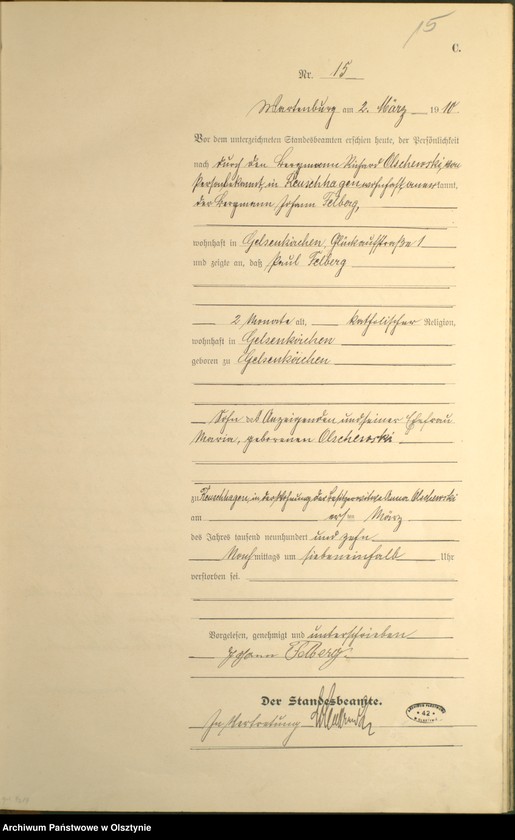 15
C.
Nr. 15
Wartenburg am 2. März 1910.
Vor dem unterzeichneten Standesbeamten erschien heute, der Persönlichkeit
nach durch den Bergmann Richard Olschewski, von
Person bekannt, in Reuschhagen wohnhaft anerkannt,
der Bergmann Johann Felberg,
wohnhaft in Gelsenkirchen, Glückaufstraße 1
und zeigte an, daß Paul Felberg
2 Monate alt, katholischer Religion,
wohnhaft in Gelsenkirchen
geboren zu Gelsenkirchen
Sohn des Anzeigenden und seiner Ehefrau
Maria, geborenen Olschewski
zu Reuschhagen, in der Wohnung der Besitzerwitwe Anna Olschewski
am ersten März
des Jahres tausend neunhundert und zehn
Nachmittags um siebeneinhalb Uhr
verstorben sei.
Vorgelesen, genehmigt und unterschrieben
Johann Felberg.
Der Standesbeamte.
In Vertretung
42
Archiwum Państwowe w Olsztynie